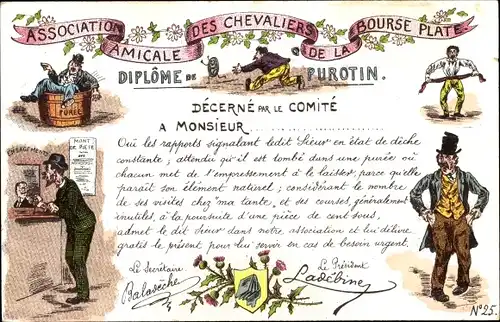 ASSOCIATION AMICALE DES CHEVALIERS DE LA BOURSE PLATE.
DIPLÔME DE PUROTIN.
PURÉE
DÉCERNÉ PAR LE COMITÉ
A MONSIEUR
MONT DE PIÉTÉ
Ouï les rapports signalant ledit Sieur en état de dèche
constante; attendu qu'il est tombé dans une purée où
chacun met de l'empressement à le laisser, parce qu'elle
paraît son élément naturel; considérant le nombre
de ses visites chez ma tante, et ses courses, généralement
inutiles, à la poursuite d'une pièce de cent sous,
admet le dit Sieur dans notre association et lui délivre
gratis le présent pour lui servir en cas de besoin urgent.
Le Secrétaire
Le Président
Balasèche
Ladébine
N° 25.